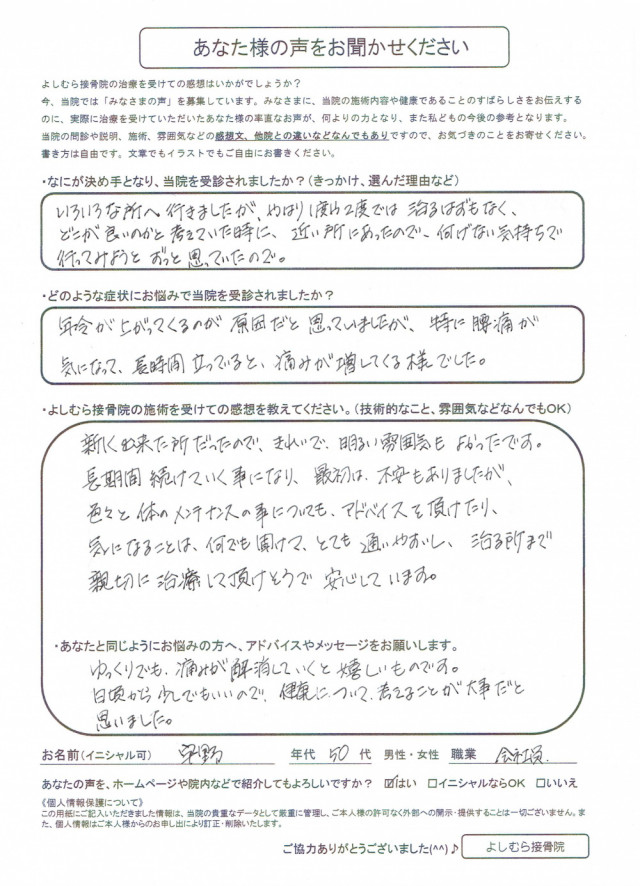 あなた様の声をお聞かせください
よしむら接骨院の治療を受けての感想はいかがでしょうか？
今、当院では「みなさまの声」を募集しています。みなさまに、当院の施術内容や健康であることのすばらしさをお伝えする
のに、実際に治療を受けていただいたあなた様の率直なお声が、何よりの力となり、また私どもの今後の参考となります。
当院の問診や説明、施術、雰囲気などの感想文、他院との違いなどなんでもありですので、お気づきのことをお寄せください。
書き方は自由です。文章でもイラストでもご自由にお書きください。
・なにが決め手となり、当院を受診されましたか？（きっかけ、選んだ理由など）
いろいろな所へ行きましたが、やはり1度や2度では治るはずもなく、
どこが良いのかと考えていた時に、近い所にあったので、何げない気持ちで
行ってみようとずっと思っていたので。
・どのような症状にお悩みで当院を受診されましたか？
年令が上がってくるのが原因だと思っていましたが、特に腰痛が
気になって、長時間立っていると、痛みが増してくる様でした。
・よしむら接骨院の施術を受けての感想を教えてください。（技術的なこと、雰囲気などなんでもOK）
新しく出来た所だったので、きれいで、明るい雰囲気もよかったです。
長期間続けていく事になり、最初は、不安もありましたが、
色々と体のメンテナンスの事についても、アドバイスを頂けたり、
気になることは、何でも聞けて、とても通いやすいし、治る所まで
親切に治療して頂けそうで安心しています。
・あなたと同じようにお悩みの方へ、アドバイスやメッセージをお願いします。
ゆっくりでも、痛みが解消していくと嬉しいものです。
日頃から少しでもいいので、健康について、考えることが大事だと
思いました。
お名前（イニシャル可） 野 年代 50 代 男性・女性 職業 会社員
あなたの声を、ホームページや院内などで紹介してもよろしいですか？ ☑はい □イニシャルならOK □いいえ
《個人情報保護について》
この用紙にご記入いただきました情報は、当院の貴重なデータとして厳重に管理し、ご本人様の許可なく外部への開示・提供することは一切ございません。ま
た、個人情報はご本人様からのお申し出により訂正・削除いたします。
ご協力ありがとうございました(^^)♪ よしむら接骨院